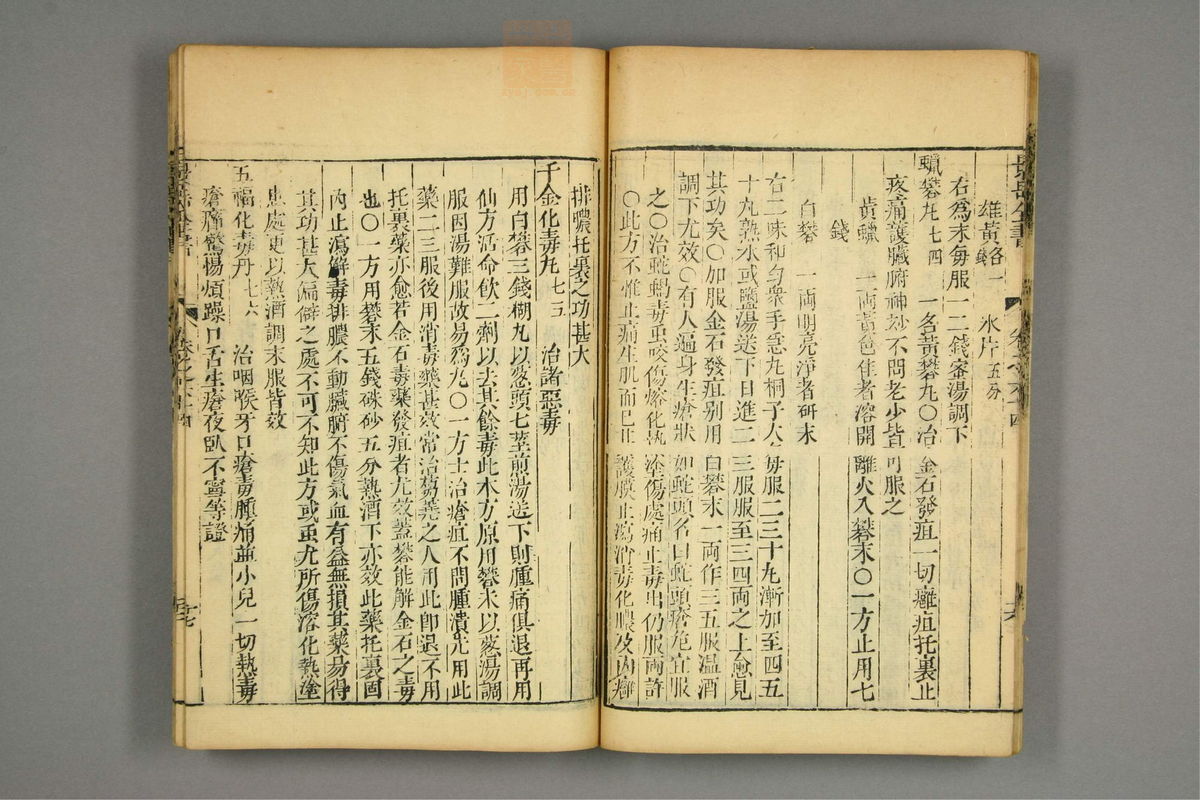 雄黃各一錢 氷片五分
右為末每服一二錢蜜湯調下
蠟礬丸七四 一名黃礬丸〇治金石發疽一切癰疽托裏止
疼痛護臟腑神玅不問老少皆可服之
黃蠟 一兩黃色佳者溶開離火入礬末〇一方止用七
錢
白礬 一兩明亮淨者研末
右二味和勻衆手急丸桐子大每服二三十丸漸加至四五
十丸熟水或鹽湯送下日進二三服服至三四兩之上愈見
其功矣〇加服金石發疽别用白礬末一兩作三五服溫酒
調下尤效〇有人遍身生瘡狀如蛇頭名曰蛇頭瘡尤宜服
之〇治蛇蝎毒虫咬傷熔化熱塗傷處痛止毒出仍服兩許
〇此方不惟止痛生肌而已且護膜止瀉消毒化膿及內癰
排膿托裏之功甚大
千金化毒丸七五 治諸惡毒
用白礬三錢糊丸以葱頭七莖煎湯送下則腫痛俱退再用
仙方活命飲二劑以去其餘毒此本方原用礬末以葱湯調
服因湯難服故易爲丸〇一方士治瘡疽不問腫潰先用此
藥二三服後用消毒藥甚效常治蒭蕘之人用此即退不用
托裏藥亦愈若金石毒藥發疽者尤效蓋礬能解金石之毒
也〇一方用礬末五錢硃砂五分熱酒下亦效此藥托裏固
內止瀉解毒排膿不動臟腑不傷氣血有益無損其藥易得
其功甚大偏僻之處不可不知此方或虫尤所傷溶化熱塗
患處更以熱酒調末服皆效
五福化毒丹七六 治咽喉牙口瘡毒腫痛並小兒一切熱毒
瘡癤驚惕煩躁口舌生瘡夜臥不寧等證